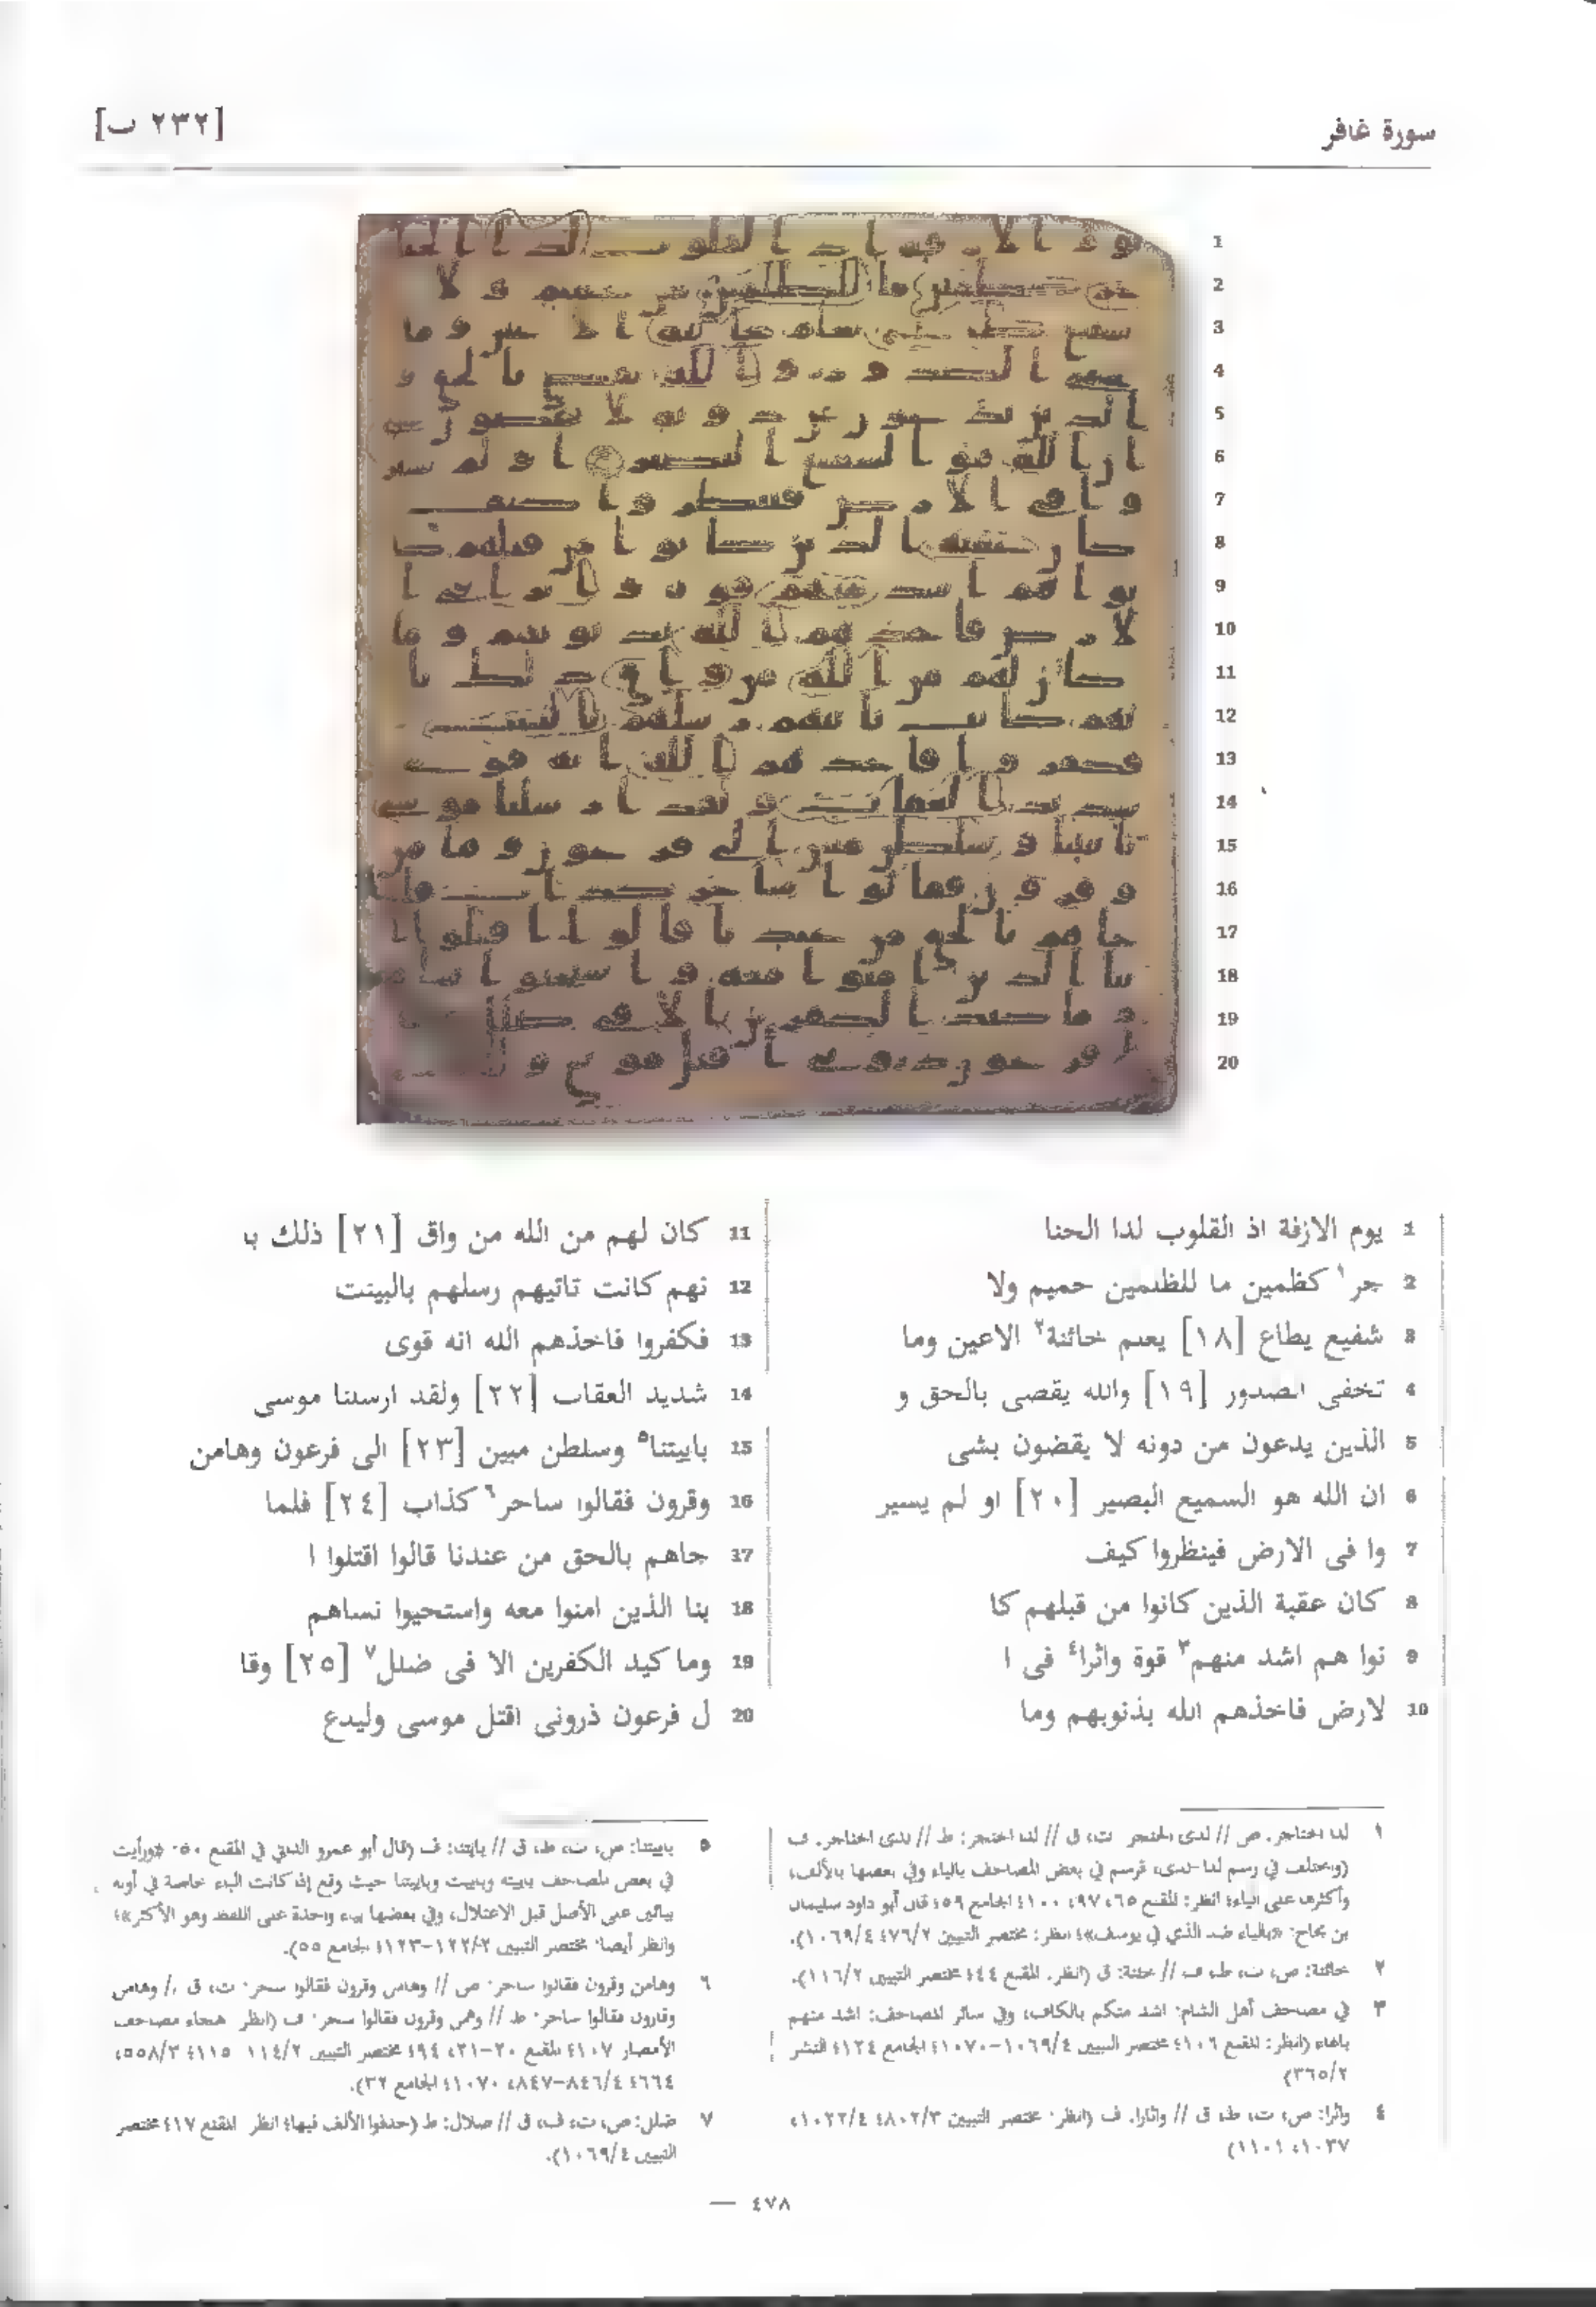 سورة غافر
[٢٣٢ ب]
1 يوم الازفة اذ القلوب لدا الحنا
2 جر١ كظمين ما للظلمين حميم ولا
3 شفيع يطاع [١٨] يعلم خائنة٢ الاعين وما
4 تخفى الصدور [١٩] والله يقضى بالحق و
5 الذين يدعون من دونه لا يقضون بشى
6 ان الله هو السميع البصير [٢٠] او لم يسير
7 وا فى الارض فينظروا كيف
8 كان عقبة الذين كانوا من قبلهم كا
9 نوا هم اشد منهم٣ قوة واثرا٤ فى ا
10 لارض فاخذهم الله بذنوبهم وما
11 كان لهم من الله من واق [٢١] ذلك با
12 نهم كانت تاتيهم رسلهم بالبينت
13 فكفروا فاخذهم الله انه قوى
14 شديد العقاب [٢٢] ولقد ارسلنا موسى
15 باييتنا٥ وسلطن مبين [٢٣] الى فرعون وهامن
16 وقرون فقالوا ساحر٦ كذاب [٢٤] فلما
17 جاهم بالحق من عندنا قالوا اقتلوا ا
18 بنا الذين امنوا معه واستحيوا نساهم
19 وما كيد الكفرين الا فى ضلل٧ [٢٥] وقا
20 ل فرعون ذرونى اقتل موسى وليدع
١ لدا الحناجر: ص // لدى الحنجر: ت، ق // لدا الحنجر: ط // لدى الحناجر: ف
(ويختلف في رسم لدا-لدى، فرسم في بعض المصاحف بالياء وفي بعضها بالألف،
وأكثرها على الياء؛ انظر: المقنع ٦٥، ٩٧، ١٠٠؛ الجامع ٥٩؛ قال أبو داود سليمان
بن نجاح: «بالياء ضد الذي في يوسف»؛ انظر: مختصر التبيين ٧٦/٢؛ ١٠٦٩/٤).
٢ خائنة: ص، ت، ط، ف // خئنة: ق (انظر: المقنع ٤٤؛ مختصر التبيين ١١٦/٢).
٣ في مصاحف أهل الشام: اشد منكم بالكاف، وفي سائر المصاحف: اشد منهم
بالهاء (انظر: المقنع ١٠٦؛ مختصر التبيين ١٠٦٩/٤-١٠٧٠؛ الجامع ١٢٤؛ النشر
٣٦٥/٢)
٤ واثرا: ص، ت، ط، ق // واثارا: ف (انظر: مختصر التبيين ٨٠٢/٣؛ ١٠٢٢/٤،
١٠٣٧، ١١٠١)
٥ باييتنا: ص، ت، ط، ق // بايتنا: ف (قال أبو عمرو الداني في المقنع ٥٠: «ورأيت
في بعض المصاحف باييه وباييت وباييتنا حيث وقع إذا كانت الباء خاصة في أوله
بيائين على الأصل قبل الاعتلال، وفي بعضها بياء واحدة على اللفظ وهو الأكثر»؛
وانظر أيضا: مختصر التبيين ١٢٢/٢-١٢٣؛ الجامع ٥٥).
٦ وهامن وقرون فقالوا ساحر: ص // وهامن وقرون فقالوا سحر: ت، ق // وهامن
وقارون فقالوا ساحر: ط // وهمن وقرون فقالوا سحر: ف (انظر: هجاء مصاحف
الأمصار ١٠٧؛ المقنع ٢٠-٢١، ٩٤؛ مختصر التبيين ١١٤/٢، ١١٥؛ ٥٥٨/٣،
٦٦٤؛ ٨٤٦/٤-٨٤٧، ١٠٧٠؛ الجامع ٣٢).
٧ ضلل: ص، ت، ف، ق // ضلال: ط (حذفوا الألف فيها؛ انظر: المقنع ١٧؛ مختصر
التبيين ١٠٦٩/٤).
٤٧٨ —